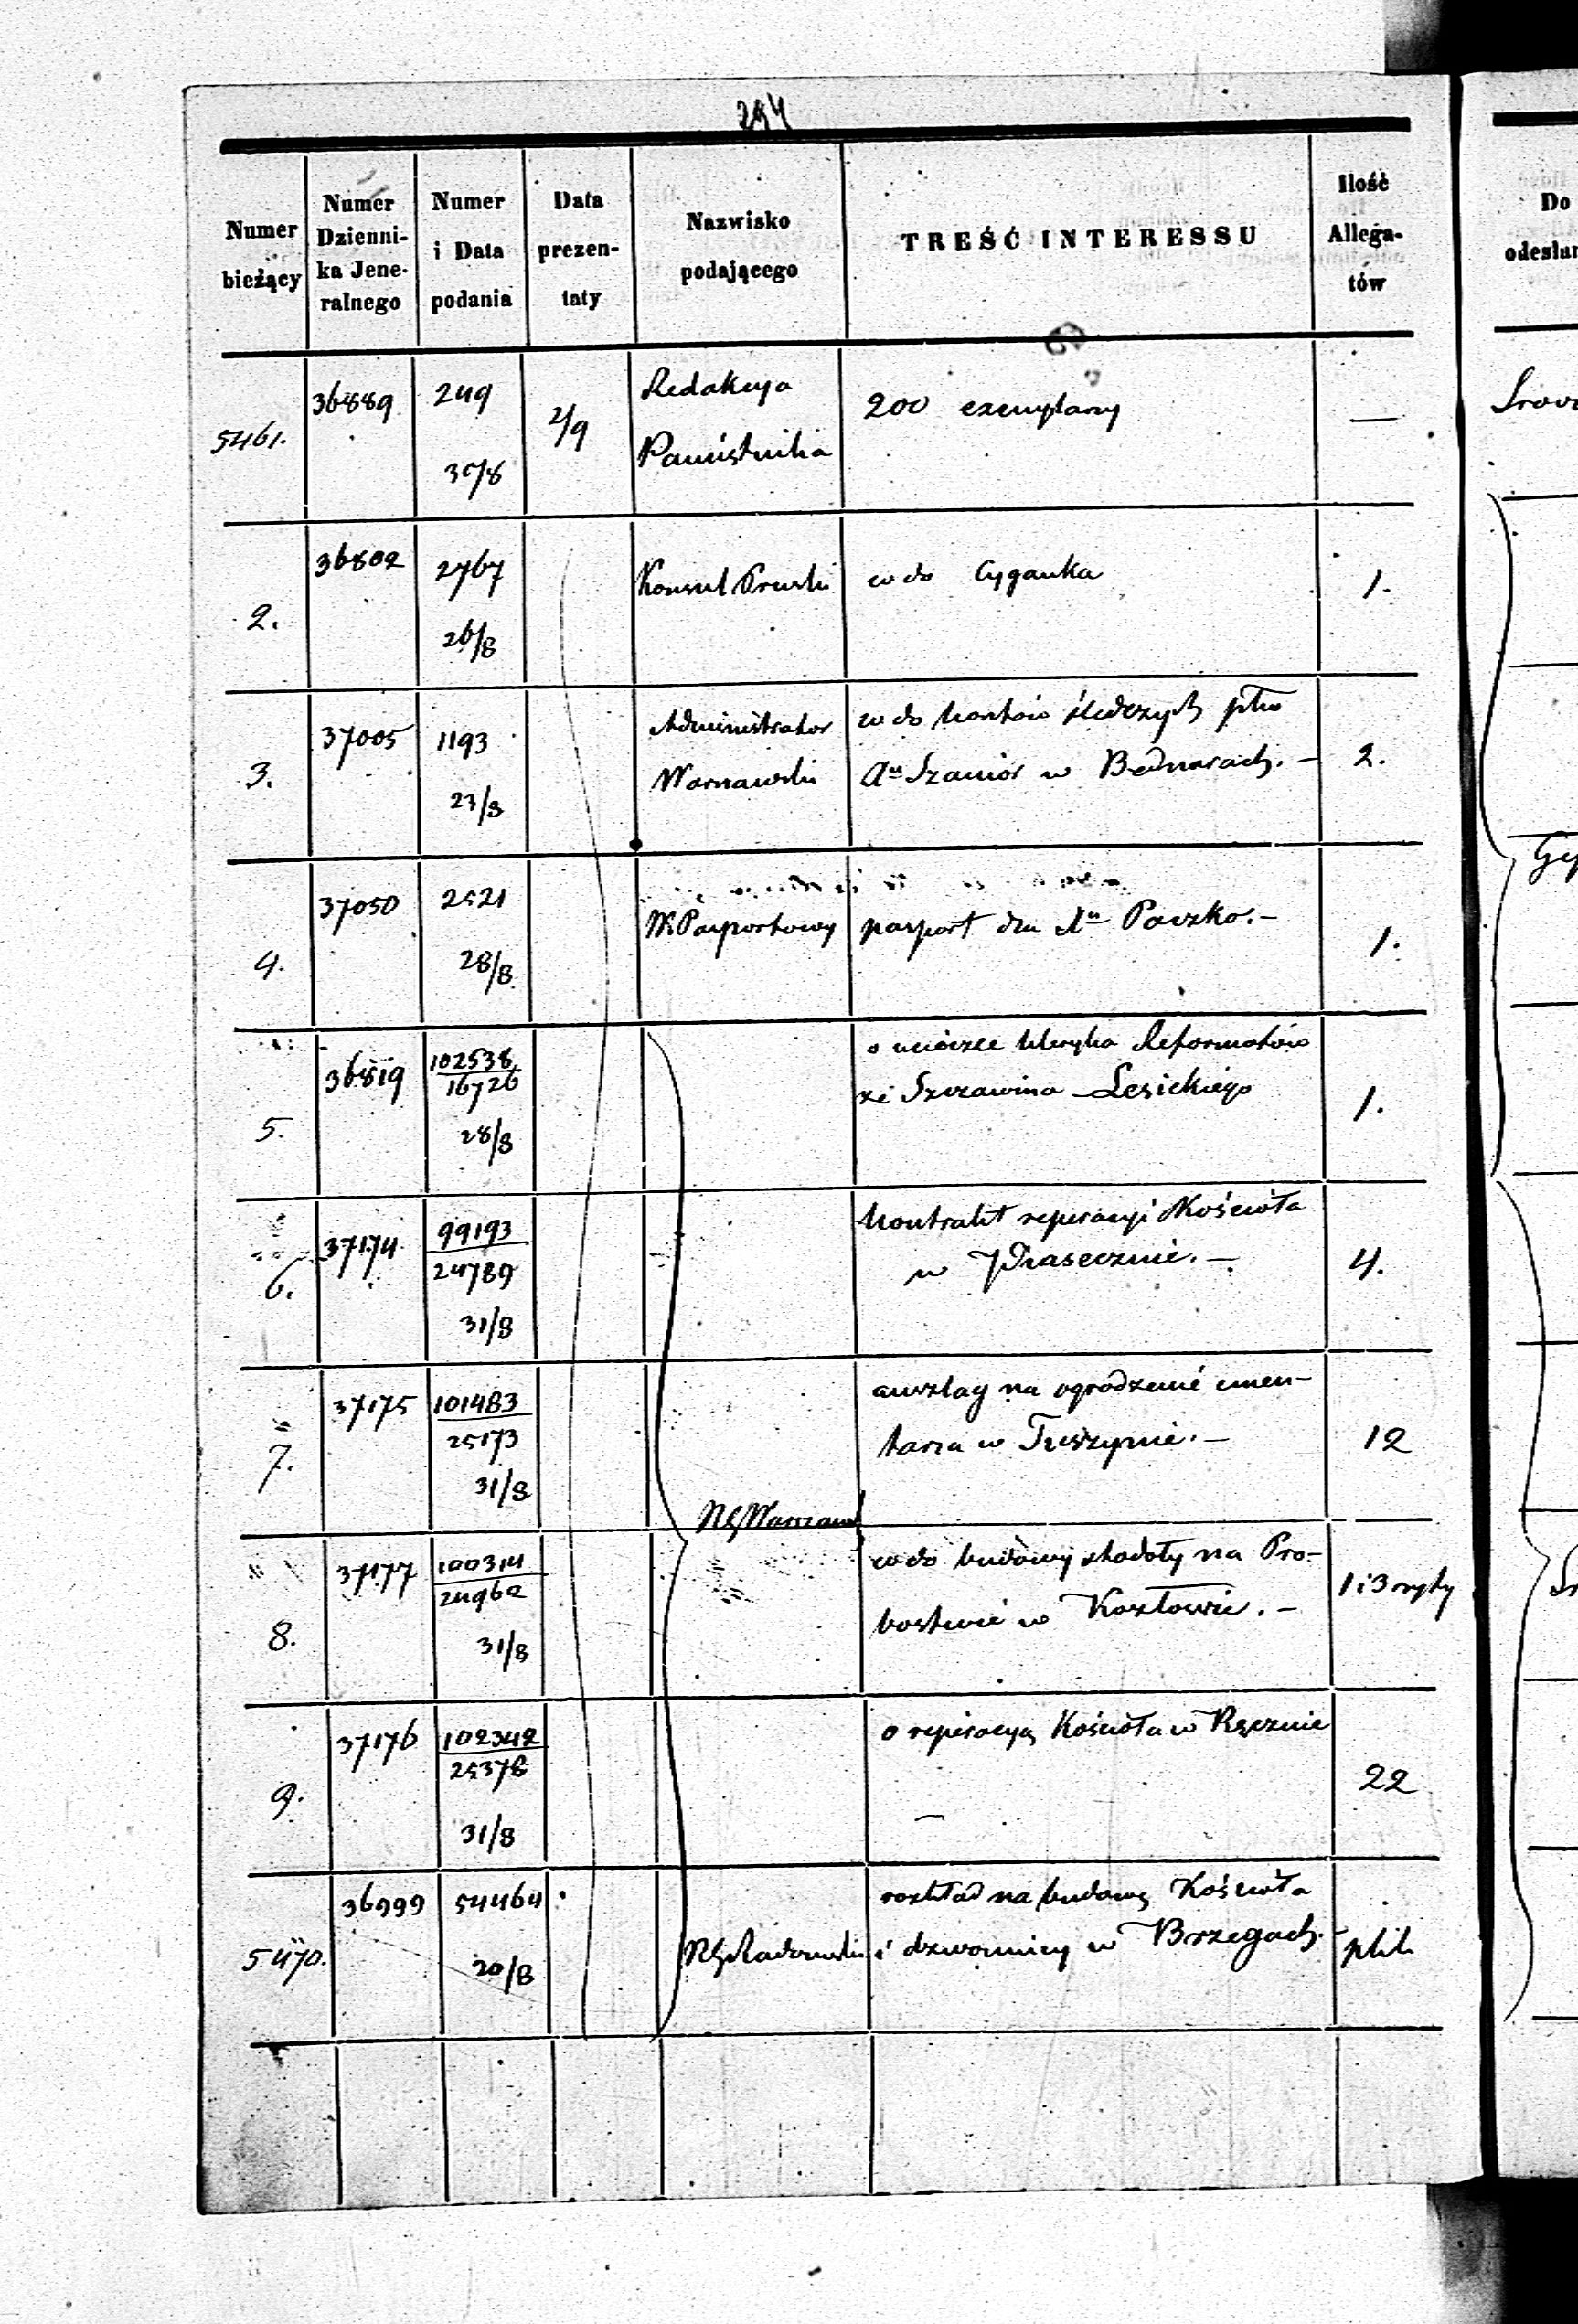 294
Numer
bieżący
Numer
Dzienni-
ka Jene-
ralnego
Numer
i Data
podania
Data
prezen-
taty
Nazwisko
podającego
TREŚĆ INTERESSU
Ilość
Allega-
tów
Do
5461.
36889
249
30/8
2/9
Redakcya
Pamiętnika
200 exemplarzy
—
2.
36802
2767
26/8
Konsul Pruski
co do Cyganka
1.
3.
37005
1193
23/8
Administrator
Warszawski
co do kosztów śledczych
w Bednarach. —
2.
4.
37050
2521
28/8
W. Pasportowy
pasport dla Xa Paczko. —
1.
5.
36819
102538
16726
28/8
o ucieczce kleryka Reformatów
ze Szczawina Lesickiego
1.
6.
37174
99193
24789
31/8
kontrakt reperacyi Kościoła
w Piasecznie. —
4.
7.
37175
101483
25173
31/8
anszlag na ogrodzenie cmen-
tarza w Tuszynie. —
12
RG Warszaws
8.
37177
100314
24962
31/8
co do budowy stodoły na Pro-
bostwie w Kozłowie. —
1 i 3 ryty
9.
37176
102342
25378
31/8
o reperacyą Kościoła w Ręcznie
—
22
5470.
36999
54464
20/8
RG Radomski
rozkład na budowę Kościoła
i dzwonnicy w Brzegach. —
plik